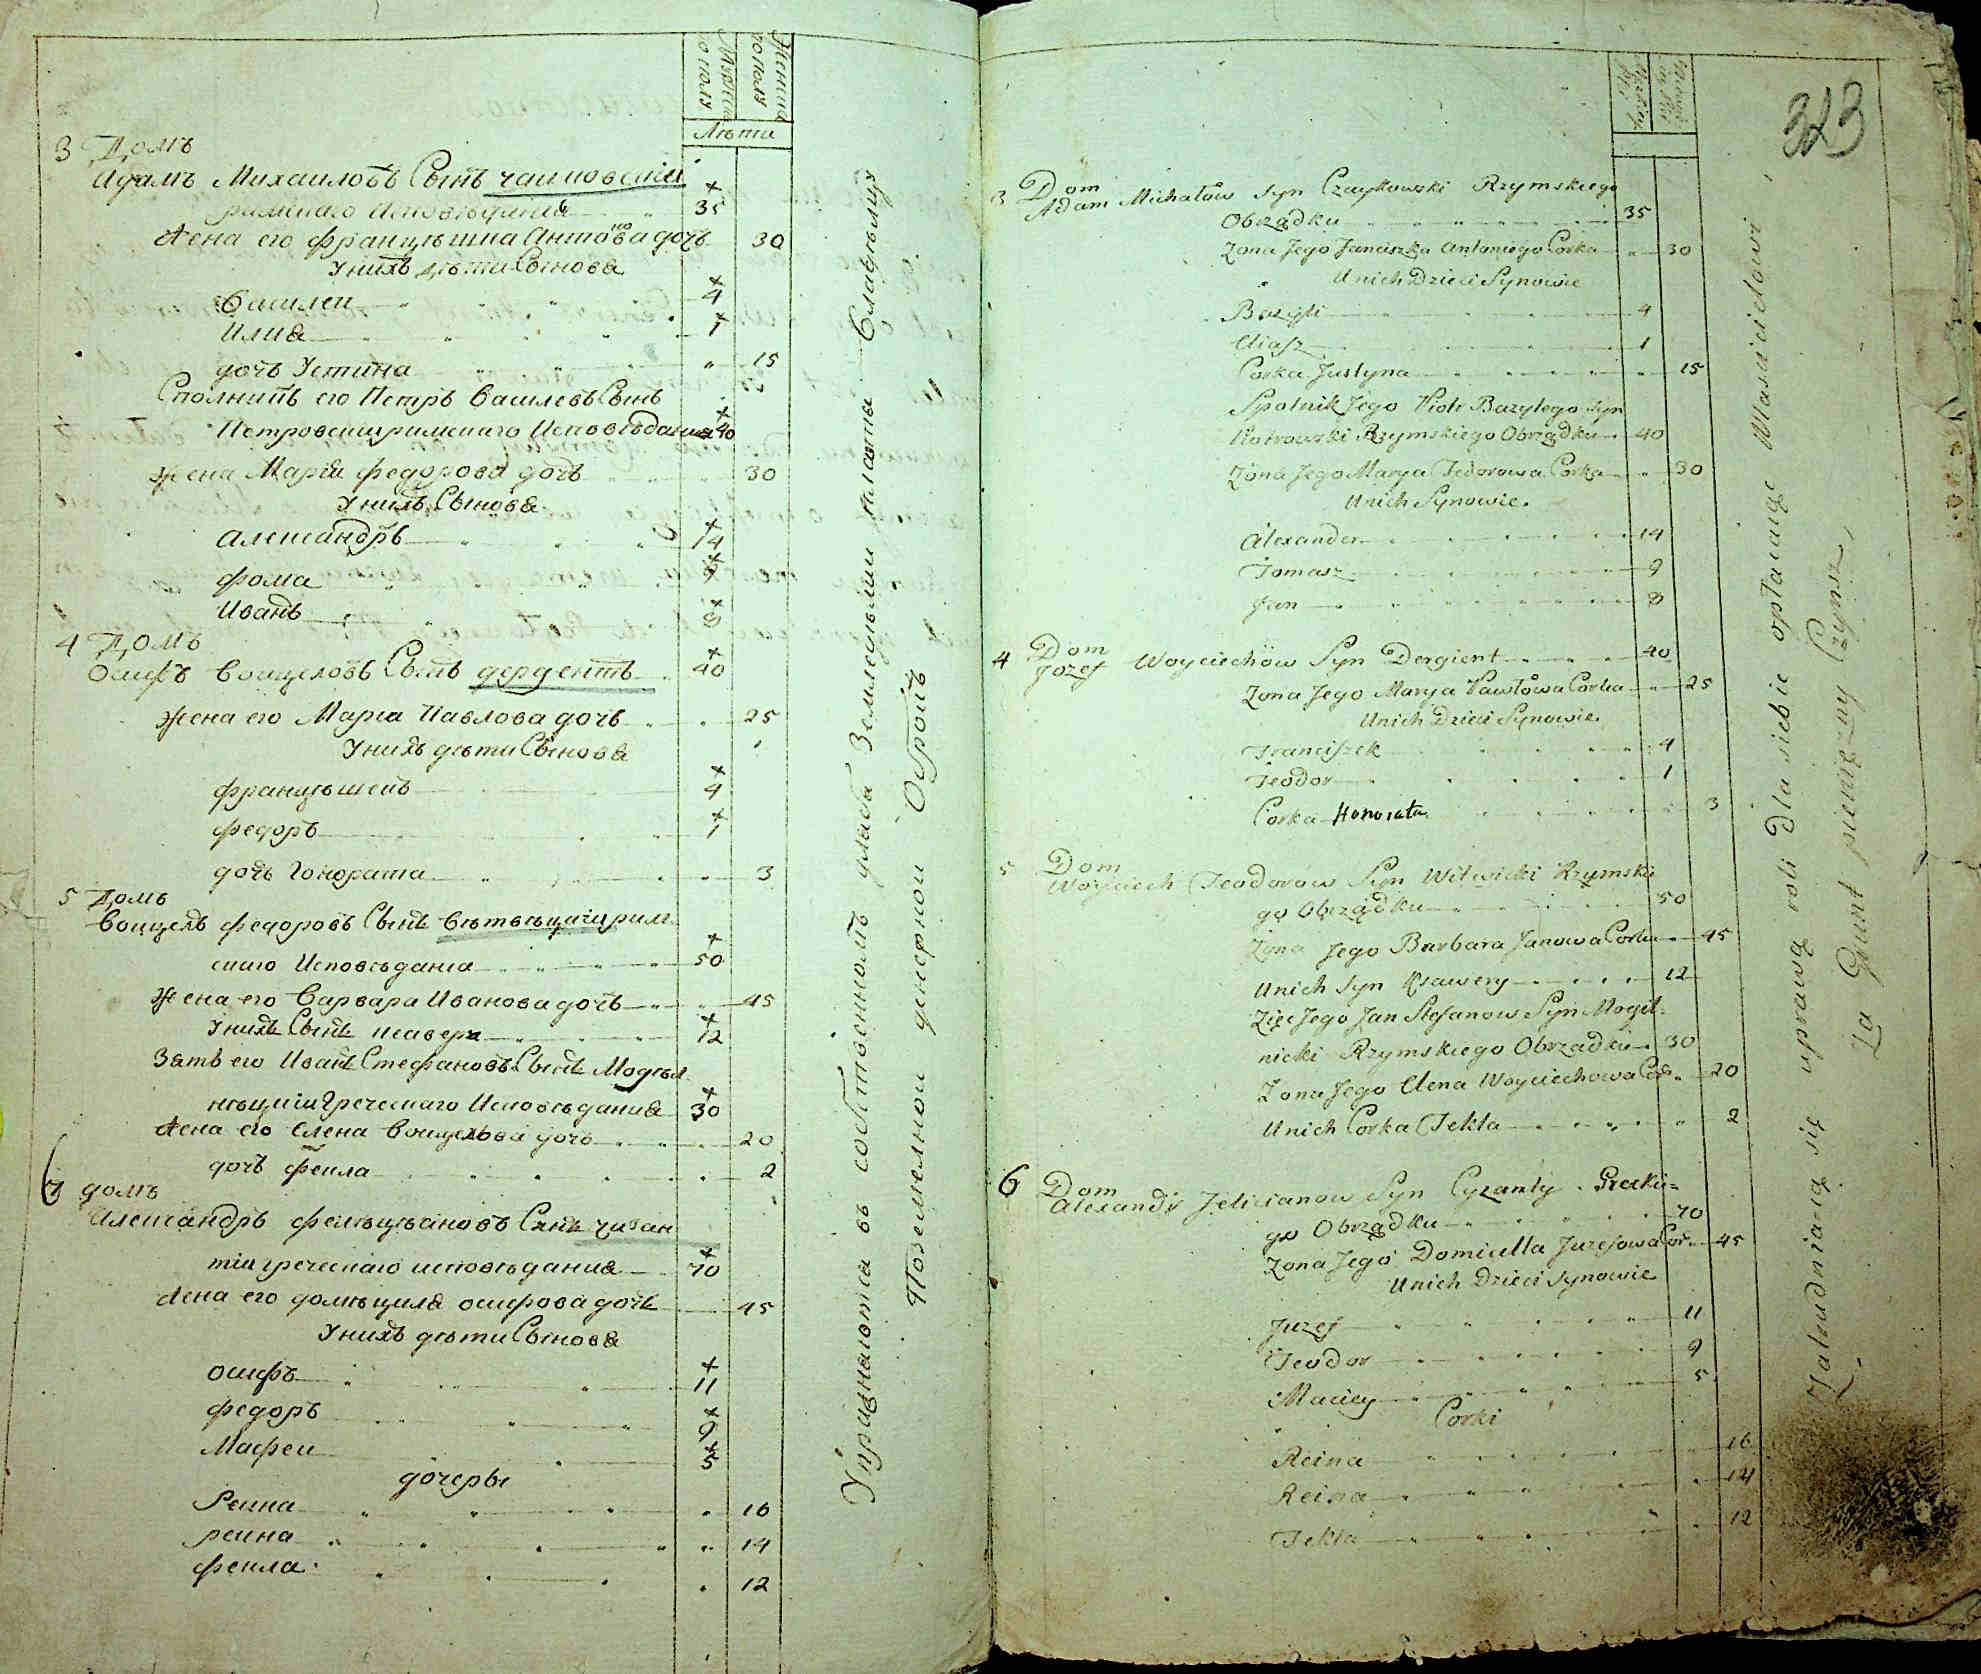 Мужеска полу
Женска полу
Лѣта
3 Домъ
Адамъ Михаиловъ Сынъ чаиковскіи
римскаго Исповѣданія 35
Жена его Францѣшка Антонова дочь 30
У нихъ дѣти Сынова
Василеи 4
Илиа 1
дочь Устина 15
Сполникъ его Петръ Василевъ Сынъ
Петровскіи римскаго Исповѣданиа 40
Жена Мариа федорова дочь 30
У нихъ Сынова
Александръ 14
фома 9
Иванъ 8
4 Домъ
Осифъ Воицеховъ Сынъ дергентъ 40
Жена его Мариа Павлова дочь 25
У нихъ дѣти Сынова
францѣшекъ 4
федоръ 1
дочь Гонората 3
5 Домъ
Воицехъ федоровъ Сынъ Вѣтвѣцкіи рим
скаго Исповѣданиа 50
Жена его Варвара Иванова дочь 45
У нихъ Сынъ ксавери 12
Зять его Иванъ Стефановъ Сынъ Могѣл
нѣцкіи Греческаго Исповѣдания 30
Жена его Елена Воицехова дочь 20
дочь фекла 2
6 домъ
Александръ фелѣцѣановъ Сынъ чизан
тіи греческаго исповѣдания 70
Жена его домѣцила осифова дочь 45
У нихъ дѣти Сынова
осифъ 11
федоръ 9
Мафеи 5
дочеры
Реина 16
реина 14
фекла 12
Упражняются въ собственномъ для себя Земледѣлии платны Владѣлцу
Поземелной денежной Оброкъ
323
3 Dom
Adam Michałow Syn Czaykowski Rzymskiego
Obrządku 35
Zona Jego Franciszka Antoniego Corka 30
U nich Dzieci Synowie
Bazyli 4
Eliasz 1
Corka Justyna 15
Spolnik Jego Piotr Bazylego Syn
Piotrowski Rzymskiego Obrządku 40
Zona Jego Marya Fedorowa Corka 30
U nich Synowie
Alexander 14
Tomasz 9
Jan 8
4 Dom
Jozef Woyciechow Syn Dergient 40
Zona Jego Marya Pawłowa Corka 25
U nich Dzieci Synowie
Franciszek 4
Teodor 1
Corka Honorata 3
5 Dom
Woyciech Teodorow Syn Witwicki Rzymskie
go Obrządku 50
Zona Jego Barbara Janowa Corka 45
U nich Syn Ksawery 12
Zięć Jego Jan Stefanow Syn Mogil-
nicki Rzymskiego Obrządku 30
Zona Jego Elena Woyciechowa Cor. 20
U nich Corka Tekla 2
6 Dom
Alexandr Felicianow Syn Cyzanty Greckie-
go Obrządku 70
Zona Jego Domicella Juzefowa Cor. 45
U nich Dzieci Synowie
Juzef 11
Teodor 9
Maciey 5
Corki
Reina 16
Reina 14
Tekla 12
Zatrudniaią się uprawą roli Dla siebie opłacaiąc Właścicielowi
Za Grunt pieniężny Czynsz